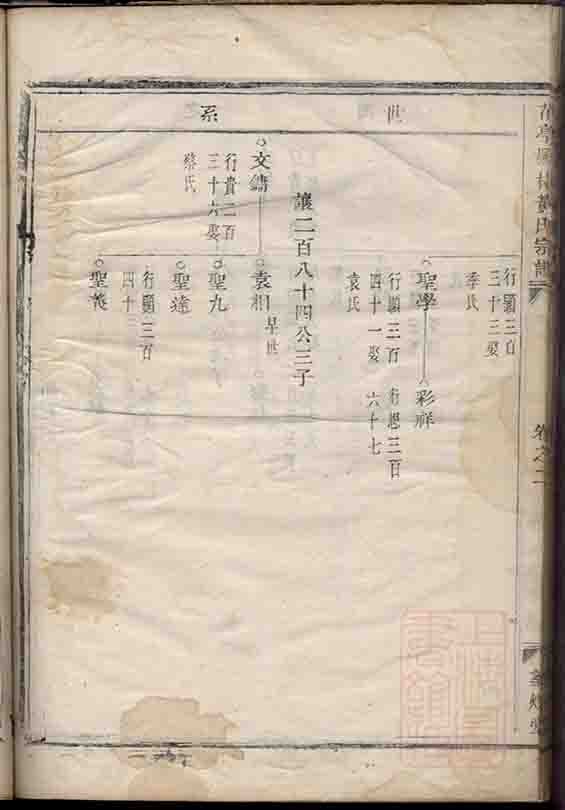 世系
行顯三百
三十三娶
季氏
聖學
行顯三百
四十一娶
袁氏
彩祥
行思三百
六十七
讓二百八十四公三子
文鑄
行貴二百
三十六娶
蔡氏
袁相
早世
聖九
聖達
行顯三百
四十三
聖義
氏宗譜
卷之二